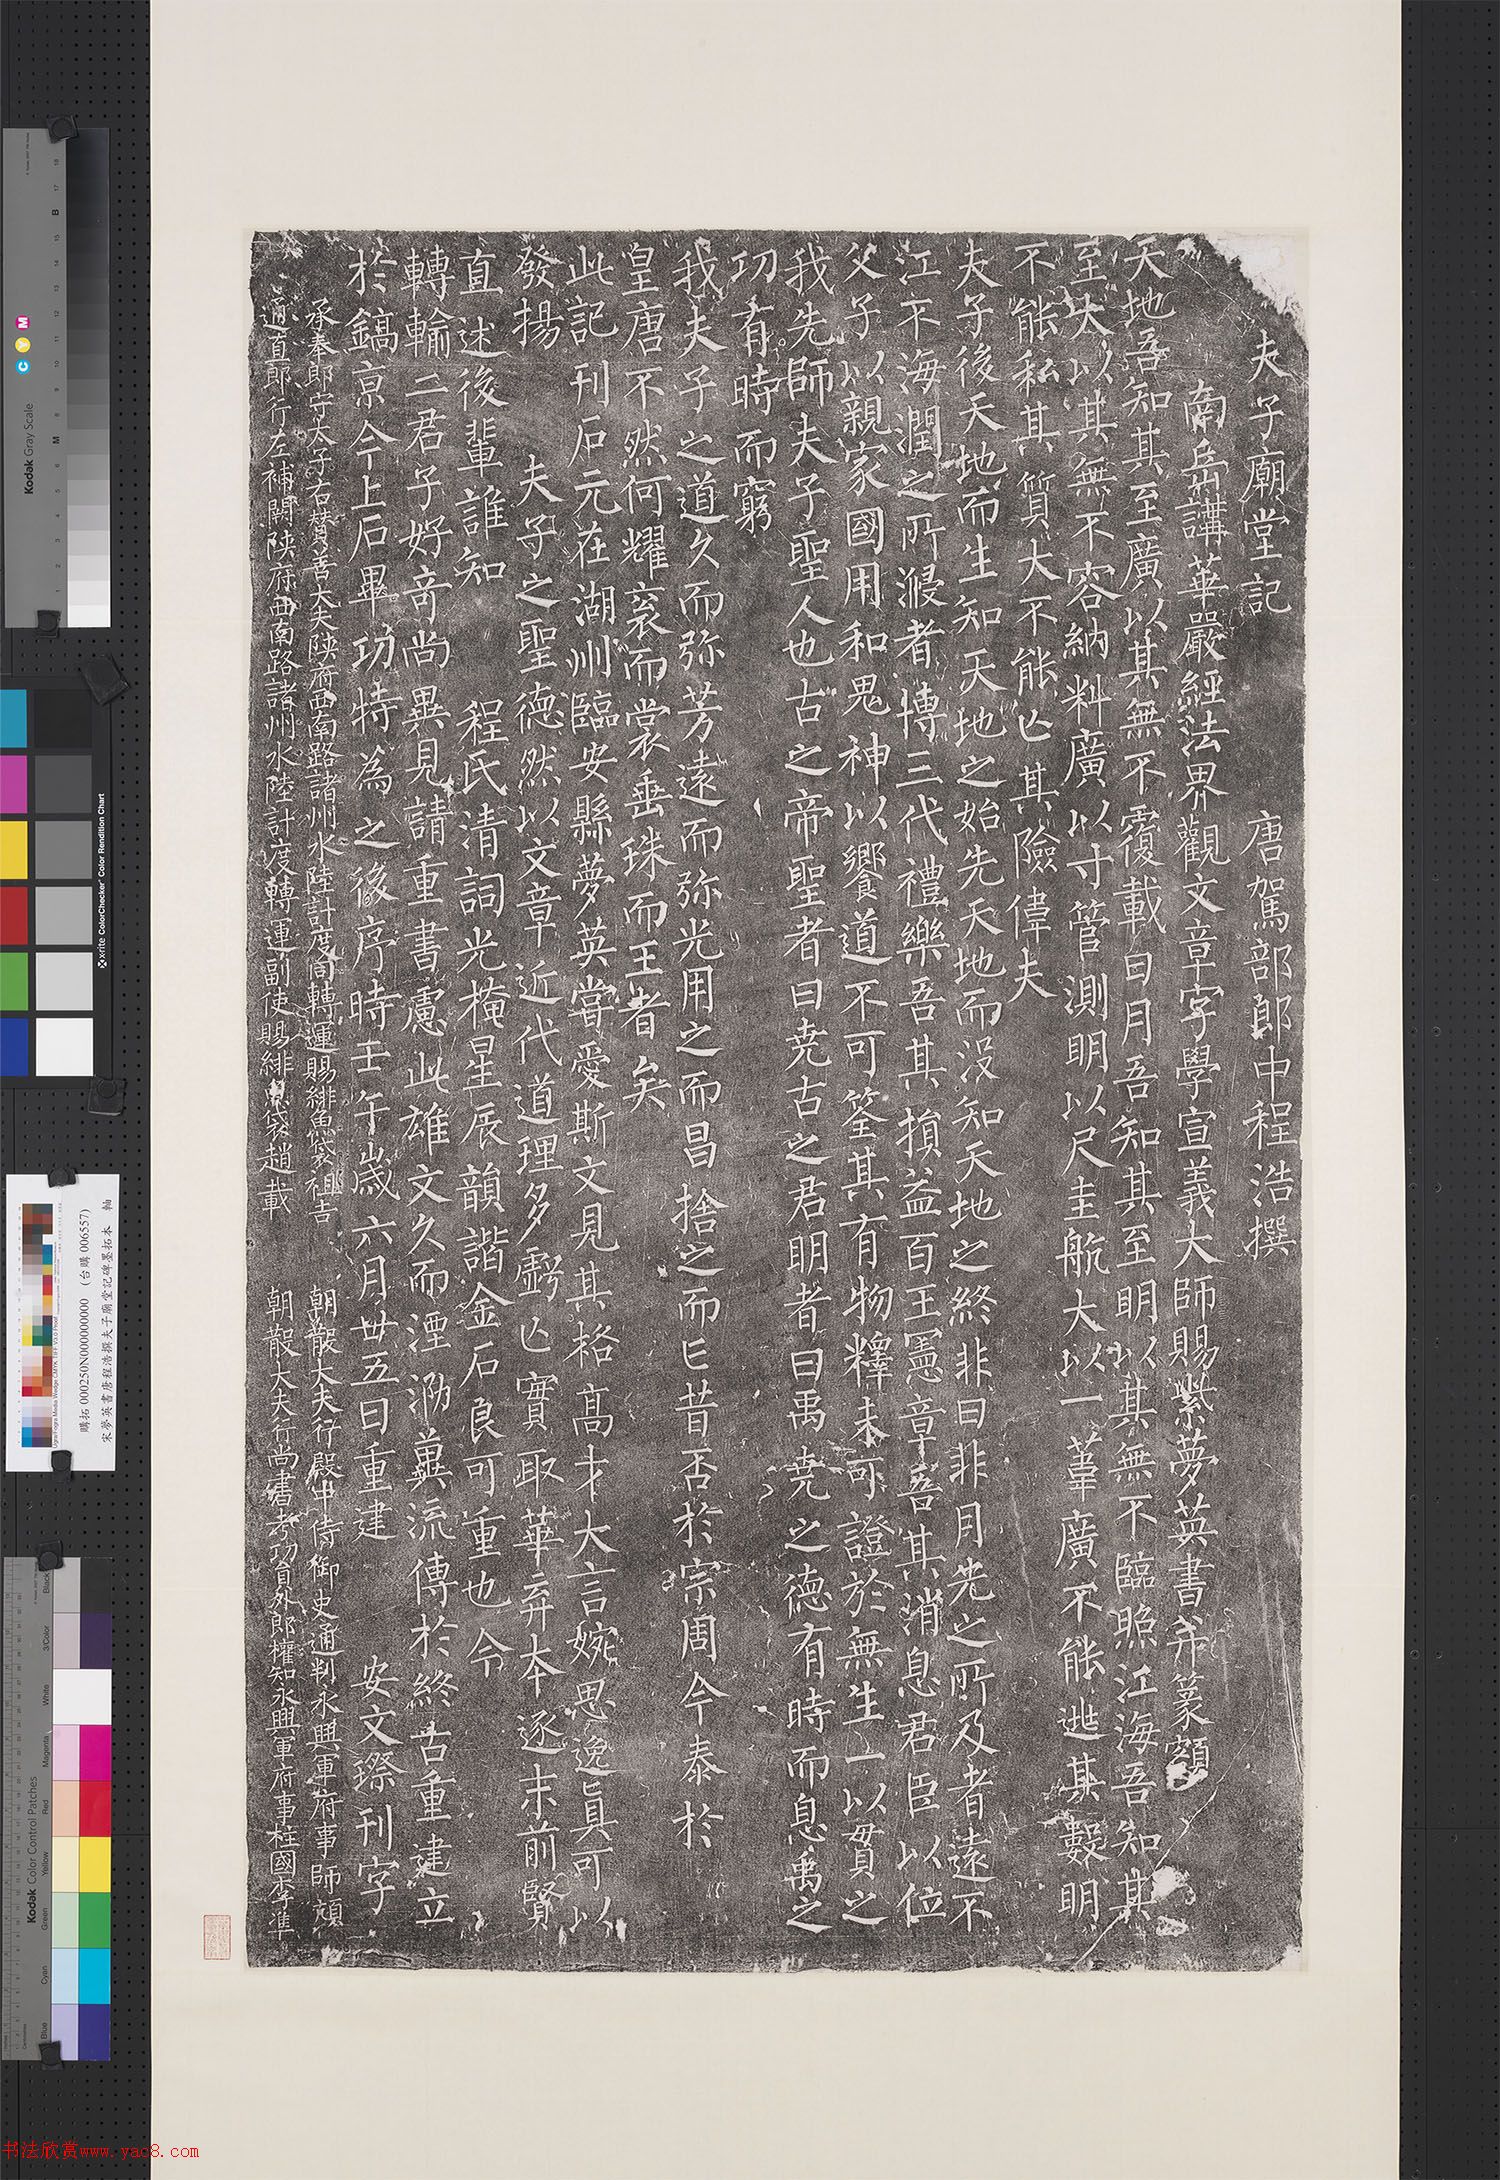 夫子廟堂記 唐駕部郎中程浩撰
南岳講華嚴經法界觀文章字學宣義大師賜紫夢英書并篆額
天地吾知其至廣以其無不覆載日月吾知其至明以其無不臨照江海吾知其
至大以其無不容納料廣以寸管測明以尺圭航大以一葦廣不能逃其數明
不能私其質大不能亡其險偉夫
夫子後天地而生知天地之始先天地而没知天地之終非日非月光之所及者遠不
江不海潤之所浸者博三代禮樂吾其損益百王憲章吾其消息君臣以位
父子以親家國用和鬼神以饗道不可筌其有物釋未可證於無生一以貫之
我先師夫子聖人也古之帝聖者曰堯古之君明者曰禹堯之德有時而息禹之
功有時而窮
我夫子之道久而弥芳遠而弥光用之而昌捨之而亡昔否於宗周今泰於
皇唐不然何耀衮而裳垂珠而王者矣
此記刊石元在湖州臨安縣夢英嘗愛斯文見其格高才大言婉思逸真可以
發揚 夫子之聖德然以文章近代道理多虧亡實取華弃本逐末前賢
直述後輩誰知 程氏清詞光掩星辰韻諧金石良可重也今
轉輸二君子好奇尚異見請重書慮此雄文久而湮泐冀流傳於終古重建立
於鎬京今上石畢功特為之後序時壬午歲六月廿五日重建 安文璨刊字
承奉郎守太子右贊善大夫陝府西南路諸州水陸計度同轉運賜緋魚袋祖吉 朝散大夫行殿中侍御史通判永興軍府事師頏
通直郎行左補闕陝府西南路諸州水陸計度轉運副使賜緋魚袋趙載 朝散大夫行尚書考功員外郎權知永興軍府事柱國李準
購拓 000250N000000000 (台購 006557)
宋夢英書唐程浩撰夫子廟堂記碑墨拓本 軸
Kodak Gray Scale
C Y M
x-rite ColorChecker Color Rendition Chart
Kodak Color Control Patches
Blue Cyan Green Yellow Red Magenta White 3/Color Black
书法欣赏www.yac8.com